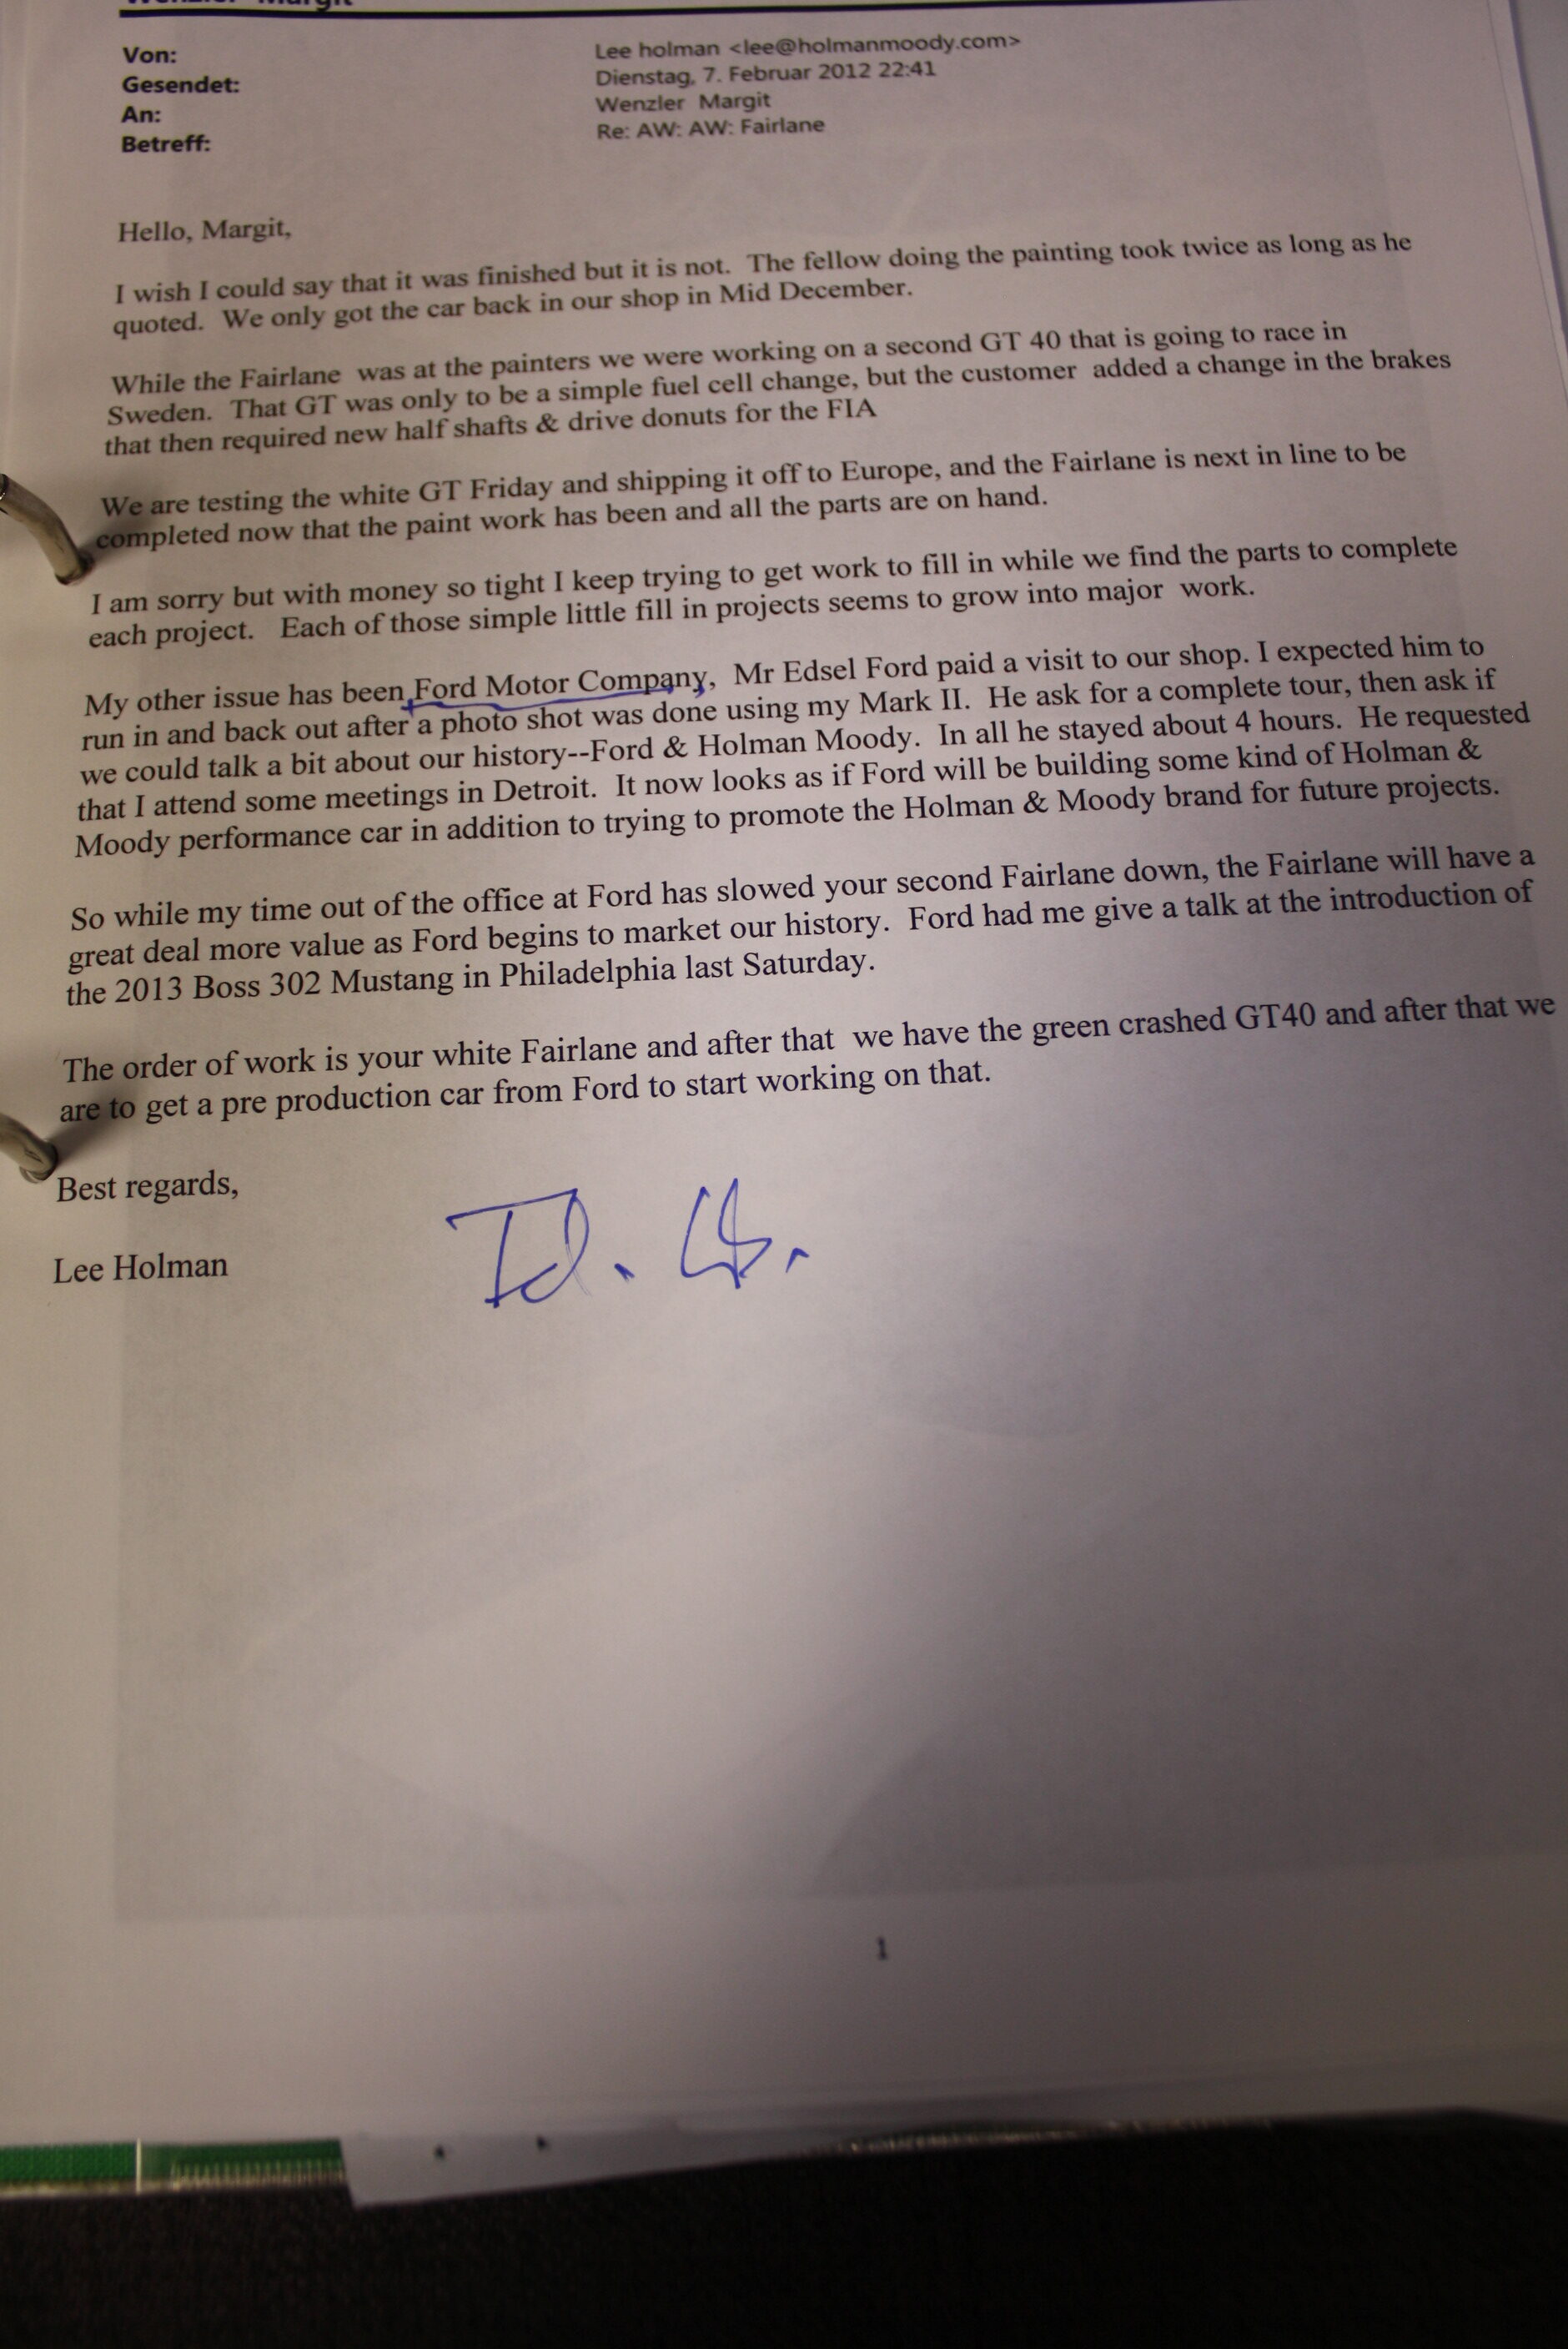 Wenzler Margit
Von: Lee holman <lee@holmanmoody.com>
Gesendet: Dienstag, 7. Februar 2012 22:41
An: Wenzler Margit
Betreff: Re: AW: AW: Fairlane
Hello, Margit,
I wish I could say that it was finished but it is not. The fellow doing the painting took twice as long as he
quoted. We only got the car back in our shop in Mid December.
While the Fairlane was at the painters we were working on a second GT 40 that is going to race in
Sweden. That GT was only to be a simple fuel cell change, but the customer added a change in the brakes
that then required new half shafts & drive donuts for the FIA
We are testing the white GT Friday and shipping it off to Europe, and the Fairlane is next in line to be
completed now that the paint work has been and all the parts are on hand.
I am sorry but with money so tight I keep trying to get work to fill in while we find the parts to complete
each project. Each of those simple little fill in projects seems to grow into major work.
My other issue has been Ford Motor Company, Mr Edsel Ford paid a visit to our shop. I expected him to
run in and back out after a photo shot was done using my Mark II. He ask for a complete tour, then ask if
we could talk a bit about our history--Ford & Holman Moody. In all he stayed about 4 hours. He requested
that I attend some meetings in Detroit. It now looks as if Ford will be building some kind of Holman &
Moody performance car in addition to trying to promote the Holman & Moody brand for future projects.
So while my time out of the office at Ford has slowed your second Fairlane down, the Fairlane will have a
great deal more value as Ford begins to market our history. Ford had me give a talk at the introduction of
the 2013 Boss 302 Mustang in Philadelphia last Saturday.
The order of work is your white Fairlane and after that we have the green crashed GT40 and after that we
are to get a pre production car from Ford to start working on that.
Best regards,
Lee Holman
1